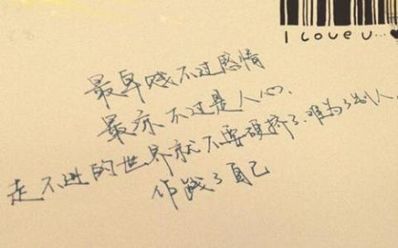 I LOVE U...
最卑贱不过感情
最凉不过是人心.
走不进的世界就不要硬挤了.难为了别人,
作践了自己